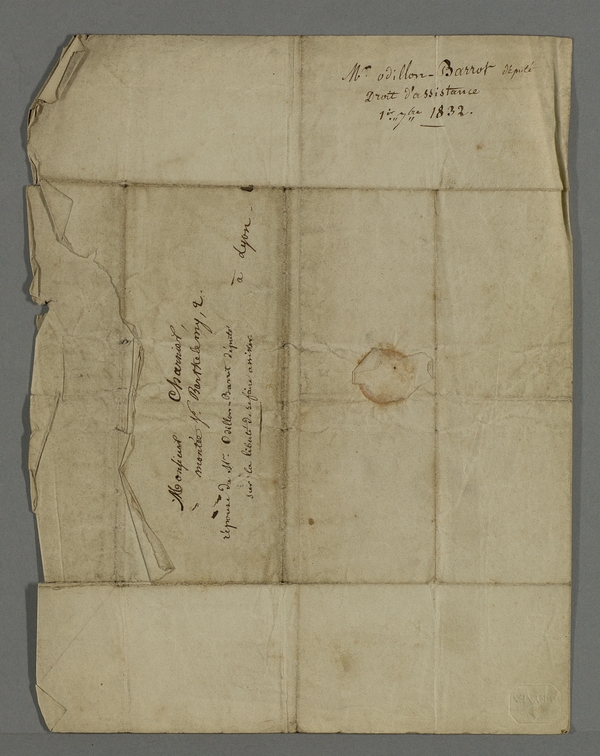 Mr odillon-Barrot député
Droit d'assistance
1er 7bre 1832.
Monsieur Charnier,
montée St. Barthelemy, 2.
à Lyon
réponse de Mr. Odillon-Barrot député
sur la liberté de se faire assister